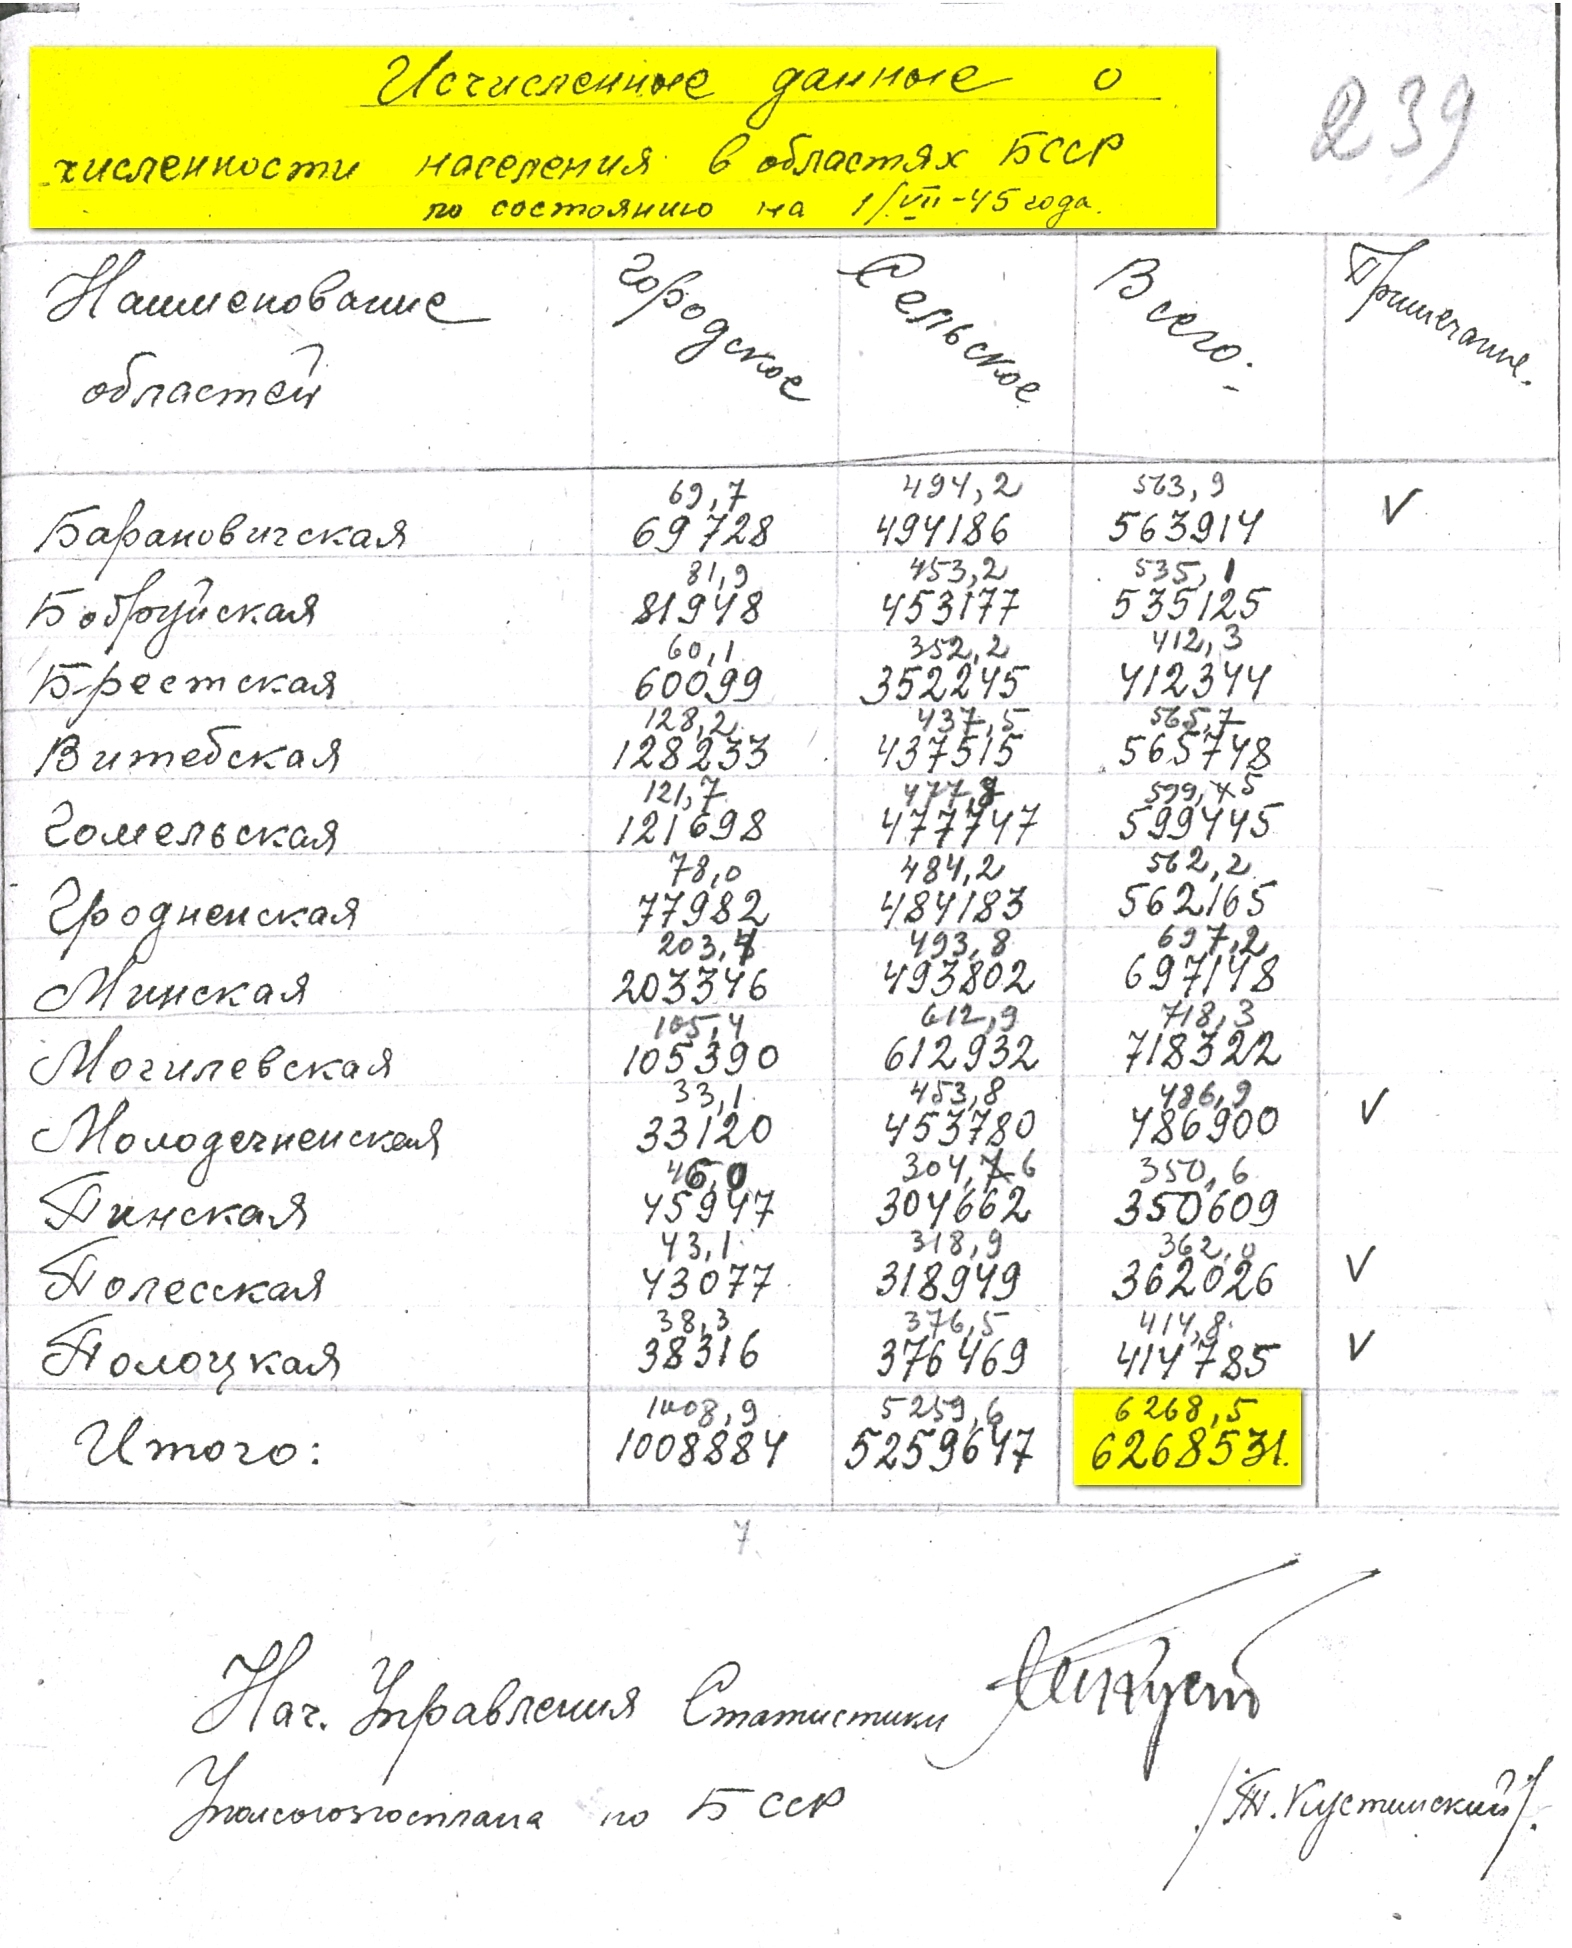 Исчисленные данные о
239
численности населения в областях БССР
по состоянию на 1/VII-45 года.
Наименование областей Городское Сельское Всего:- Примечание.
69,7 494,2 563,9
Барановичская 69728 494186 563914 V
81,9 453,2 535,1
Бобруйская 81948 453177 535125
60,1 352,2 412,3
Брестская 60099 352245 412344
128,2 437,5 565,7
Витебская 128233 437515 565748
121,7 477,8 599,5
Гомельская 121698 477747 599445
78,0 484,2 562,2
Гродненская 77982 484183 562165
203,4 493,8 697,2
Минская 203346 493802 697148
105,4 612,9 718,3
Могилевская 105390 612932 718322
33,1 453,8 486,9
Молодечненская 33120 453780 486900 V
46,0 304,6 350,6
Пинская 45947 304662 350609
43,1 318,9 362,0
Полесская 43077 318949 362026 V
38,3 376,5 414,8
Полоцкая 38316 376469 414785 V
1008,9 5259,6 6268,5
Итого: 1008884 5259647 6268531.
7
Нач. Управления Статистики
Уполсоюзгосплана по БССР /Т. Кустинский/.